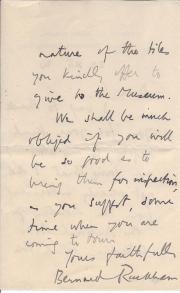 nature of the tiles
you kindly offer to
give to the Museum.
We shall be much
obliged if you will
be so good as to
bring them for inspection,
as you suggest, some
time when you are
coming to town.
Yours faithfully
Bernard Rackham